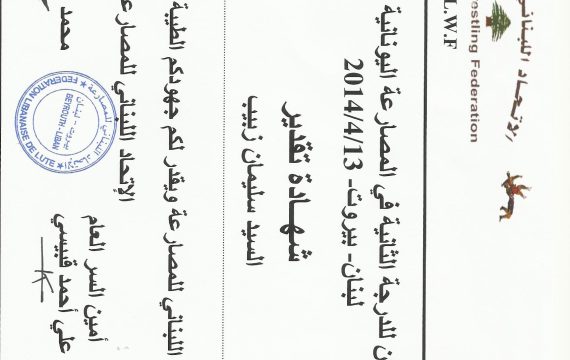 الاتحاد اللبناني
estling Federation
L.W.F
ن للدرجة الثانية في المصارعة اليونانية
لبنان- بيروت- 2014/4/13
شهادة تقدير
السيد سليمان زبيب
اللبناني للمصارعة ويقدر لكم جهودكم الطيبة
الإتحاد اللبناني للمصارعة
أمين السر العام
علي أحمد قبيسي
محمد
FEDERATION LIBANAISE DE LUTE
BEYROUTH - LIBAN